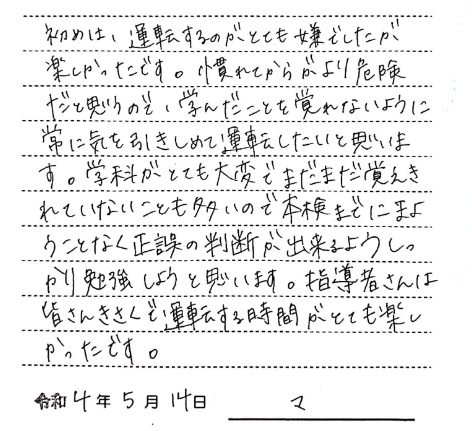 初めは、運転するのがとても嫌でしたが
楽しかったです。慣れてからがより危険
だと思うので、学んだことを覚れないように
常に気を引きしめて運転したいと思いま
す。学科がとても大変でまだまだ覚えき
れていないことも多いので本検までにまよ
うことなく正誤の判断が出来るようしっ
かり勉強しようと思います。指導者さんは
皆さんきさくで運転する時間がとても楽し
かったです。
令和4年5月14日 マ